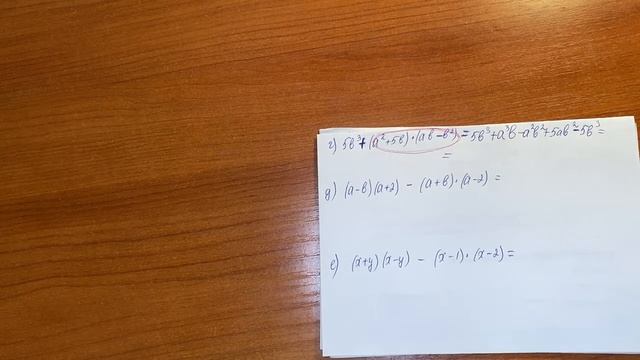 г) 5b³ + (a² + 5b) · (ab - b²) = 5b³ + a³b - a²b² + 5ab² - 5b³ =
=
д) (a-b)(a+2) - (a+b)·(a-2) =
е) (x+y)(x-y) - (x-1)·(x-2) =